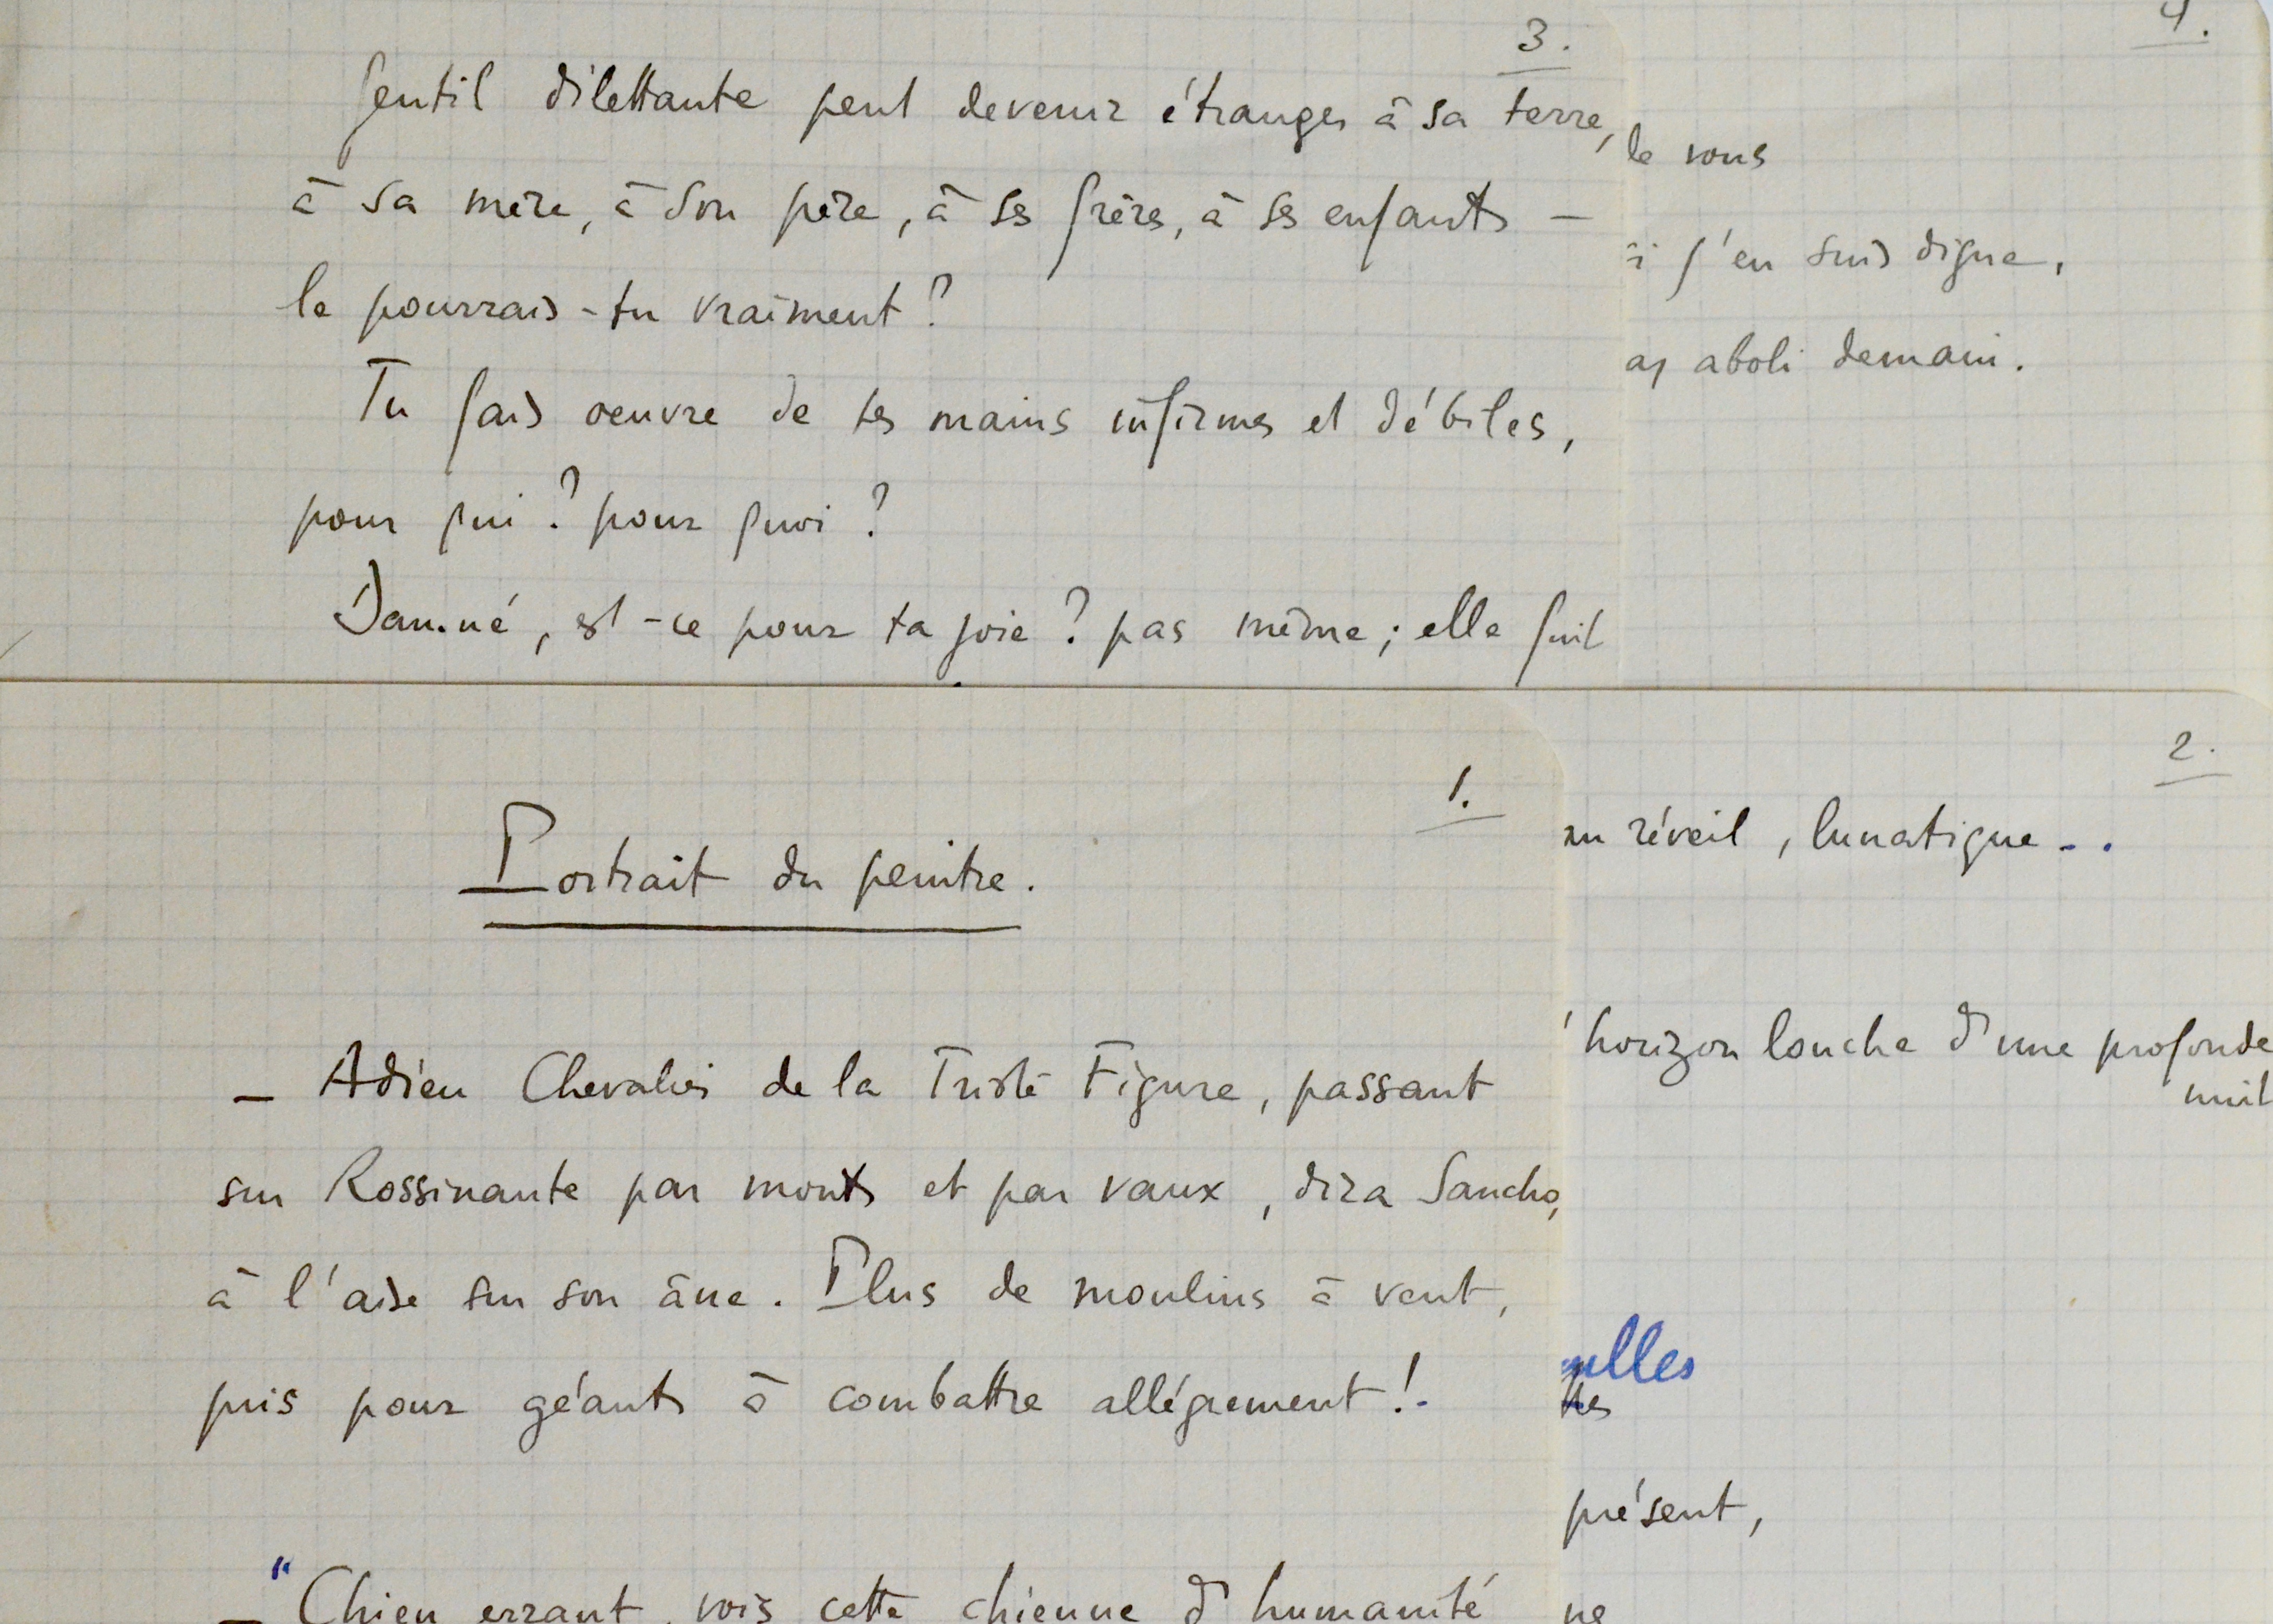 3.
Gentil dilettante peut devenir étranger à sa terre,
à sa mère, à son père, à ses frères, à ses enfants —
le pourrais-tu vraiment ?
Tu fais oeuvre de tes mains infirmes et débiles,
pour qui ? pour quoi ?
Damné, est-ce pour ta joie ? pas même ; elle fuit
4.
le vous
j'en suis digne,
aboli demain.
1.
Portrait du peintre.
— Adieu Chevalier de la Triste Figure, passant
sur Rossinante par monts et par vaux, dira Sancho,
à l'aise sur son âne. Plus de moulins à vent,
pris pour géants à combattre allégrement !.
— "Chien errant, vois cette chienne d'humanité
2.
réveil, lunatique...
horizon louche d'une profonde
nuit
elles
tes
présent,
ne